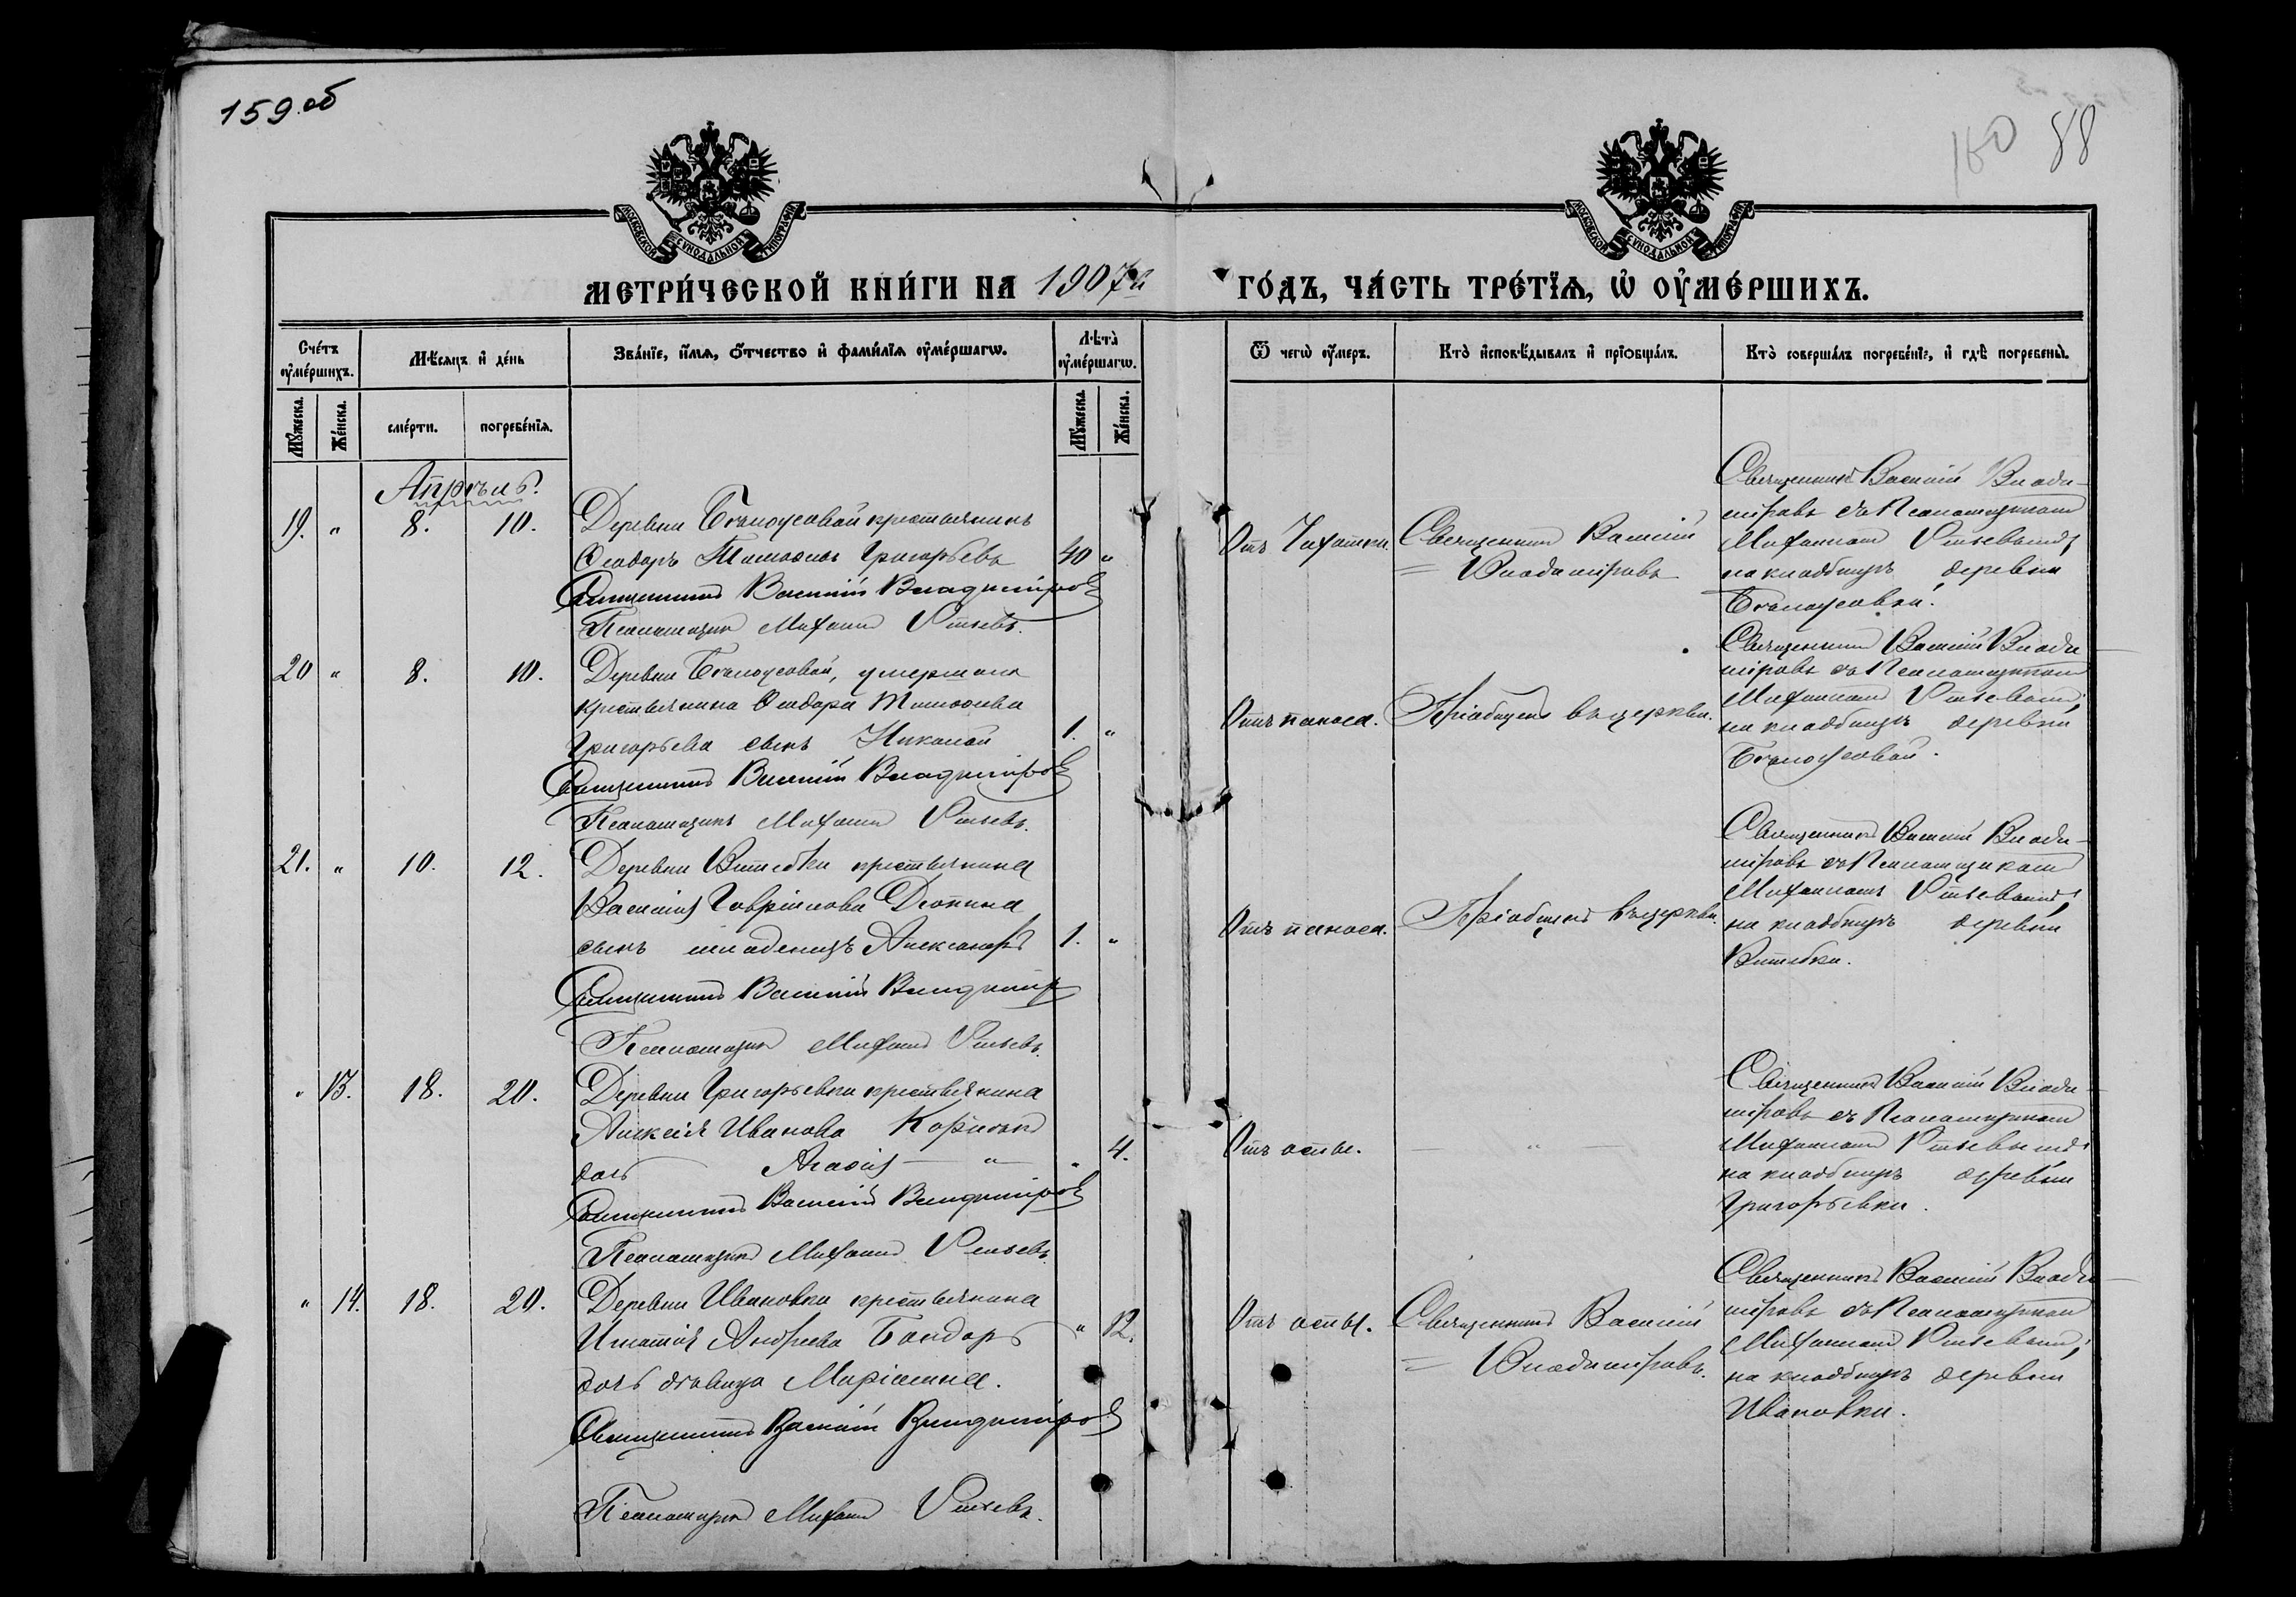 159 об
160 88
МОСКОВСКОЙ СѴНОДАЛЬНОЙ ТИПОГРАФІИ
МОСКОВСКОЙ СѴНОДАЛЬНОЙ ТИПОГРАФІИ
МЕТРИ́ЧЕСКОЙ КНИ́ГИ НА 1907й ГО́ДЪ, ЧА́СТЬ ТРЕ́ТЇѦ, Ѡ҆ ОУ҆МЕ́РШИХЪ.
Сче́тъ оу҆ме́ршихъ.
Мѣ́сѧцъ и҆ де́нь
Зва́нїе, и҆́мѧ, ѻ҆́тчество и҆ фами́лїѧ оу҆ме́ршагѡ.
Лѣ́та̀ оу҆ме́ршагѡ.
Ѿ чегѡ̀ оу҆́меръ.
Кто̀ и҆сповѣ́дывалъ и҆ прїѻбща́лъ.
Кто̀ соверша́лъ погребе́нїе, и҆ гдѣ̀ погребены̀.
Мꙋ́жеска.
Же́нска.
сме́рти.
погребе́нїѧ.
Мꙋ́жеска.
Же́нска.
Апрѣль.
19. " 8. 10.
Деревни Бѣлоусовой крестьянинъ
Ѳеодоръ Тимоѳеевъ Григорьевъ 40 "
Священникъ Василій Владиміровъ
Псаломщикъ Михаилъ
Отъ Чахотки.
Священникъ Василій
= Владиміровъ
Священникъ Василій Влади-
міровъ съ Псаломщикомъ
Михаиломъ
на кладбищѣ деревни
Бѣлоусовой.
20 " 8. 10.
Деревни Бѣлоусовой, умершаго
крестьянина Ѳеодора Тимоѳеева
Григорьева сынъ Николай 1. "
Священникъ Василій Владиміровъ
Псаломщикъ Михаилъ
Отъ поноса.
Пріобщенъ въ церкви.
Священникъ Василій Влади-
міровъ съ Псаломщикомъ
Михаиломъ
на кладбищѣ деревни
Бѣлоусовой.
21. " 10. 12.
Деревни Витебки крестьянина
Василія Гавріилова
сынъ младенецъ Александръ 1. "
Священникъ Василій Владиміръ
Псаломщикъ Михаилъ
Отъ поноса.
Пріобщенъ въ церкви.
Священникъ Василій Влади-
міровъ съ Псаломщикомъ
Михаиломъ
на кладбищѣ деревни
Витебки.
" 13. 18. 20.
Деревни Григорьевки крестьянина
Алексія Иванова
дочь Агаѳія — " — " 4.
Священникъ Василій Владиміровъ
Псаломщикъ Михаилъ
Отъ оспы.
— " —
Священникъ Василій Влади-
міровъ съ Псаломщикомъ
Михаиломъ
на кладбищѣ деревни
Григорьевки.
" 14. 18. 20.
Деревни Ивановки крестьянина
Игнатія Андреева Бондарь " 12.
дочь дѣвица Маріамна.
Священникъ Василій Владиміровъ
Псаломщикъ Михаилъ
Отъ оспы.
Священникъ Василій
= Владиміровъ.
Священникъ Василій Влади-
міровъ съ Псаломщикомъ
Михаиломъ
на кладбищѣ деревни
Ивановки.